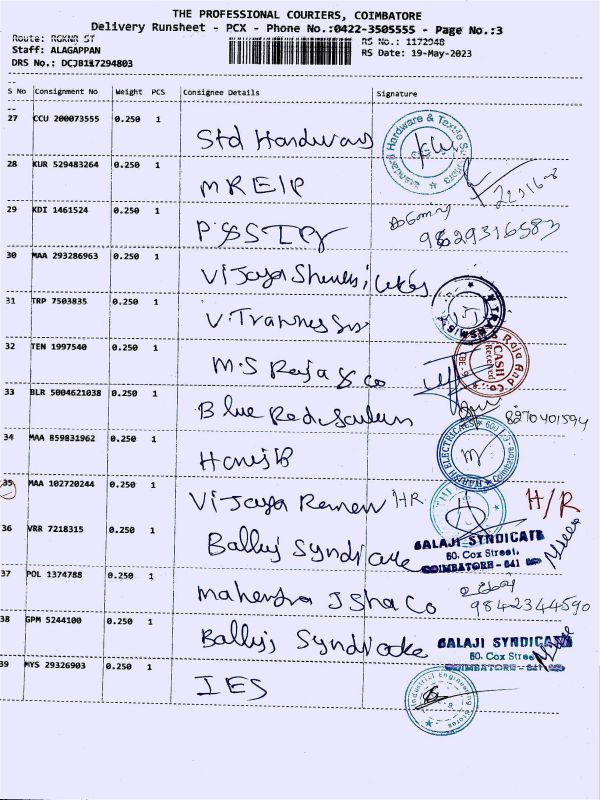 THE PROFESSIONAL COURIERS, COIMBATORE
Delivery Runsheet - PCX - Phone No.:0422-3505555 - Page No.:3
Route: RGKNR ST
RS No.: 1172948
Staff: ALAGAPPAN
RS Date: 19-May-2023
DRS No.: DCJB117294803
S No Consignment No Weight PCS Consignee Details Signature
27 CCU 200073555 0.250 1
Std Hardware
Standard Hardware & Textile
28 KUR 529483264 0.250 1
MREIP
29 KDI 1461524 0.250 1
9629316583
30 MAA 293286963 0.250 1
Vijaya
31 TRP 7503835 0.250 1
V.
32 TEN 1997540 0.250 1
M.S Raja & Co
Raja And Co
CASH
Received
CBE-9
33 BLR 5004621038 0.250 1
Blue Red
8270401594
34 MAA 859831962 0.250 1
HARISH ELECTRICALS
Coimbatore
35 MAA 102720244 0.250 1
Vijaya HR.
H/R
36 VRR 7218315 0.250 1
Ballaji Syndicate
BALAJI SYNDICATE
60, Cox Street,
COIMBATORE - 641
37 POL 1374788 0.250 1
Mahendra J Sha Co
9842344590
38 GPM 5244100 0.250 1
Ballaji Syndicate
BALAJI SYNDICATE
60, Cox Street
COIMBATORE - 641
39 MYS 29326903 0.250 1
IES
Industrial Engineering Stores